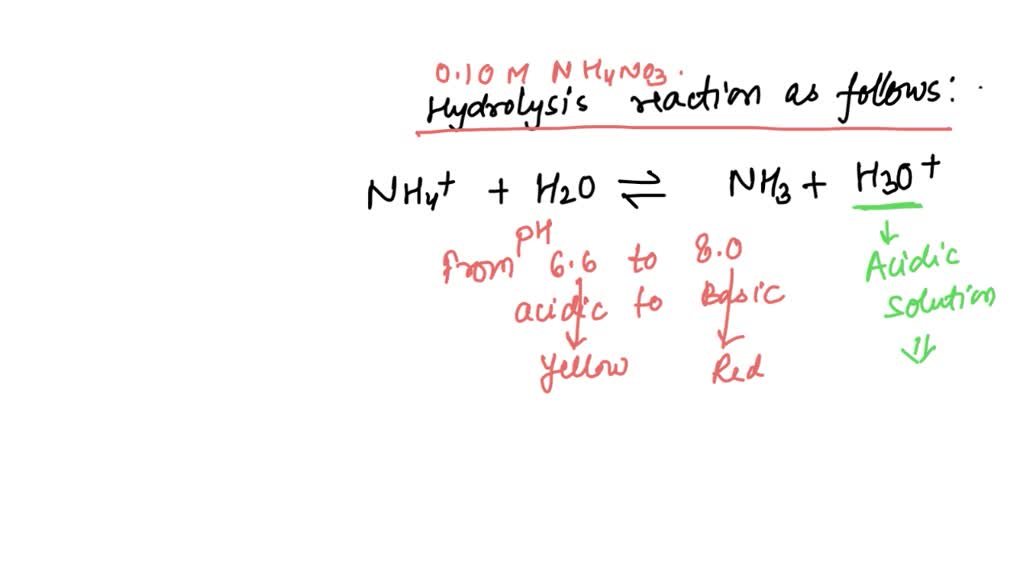 0.10 M NH4NO3.
Hydrolysis reaction as follows:
NH4+ + H2O ⇌ NH3 + H3O+
pH
from 6.6 to 8.0
acidic to Basic
Yellow Red
Acidic
solution